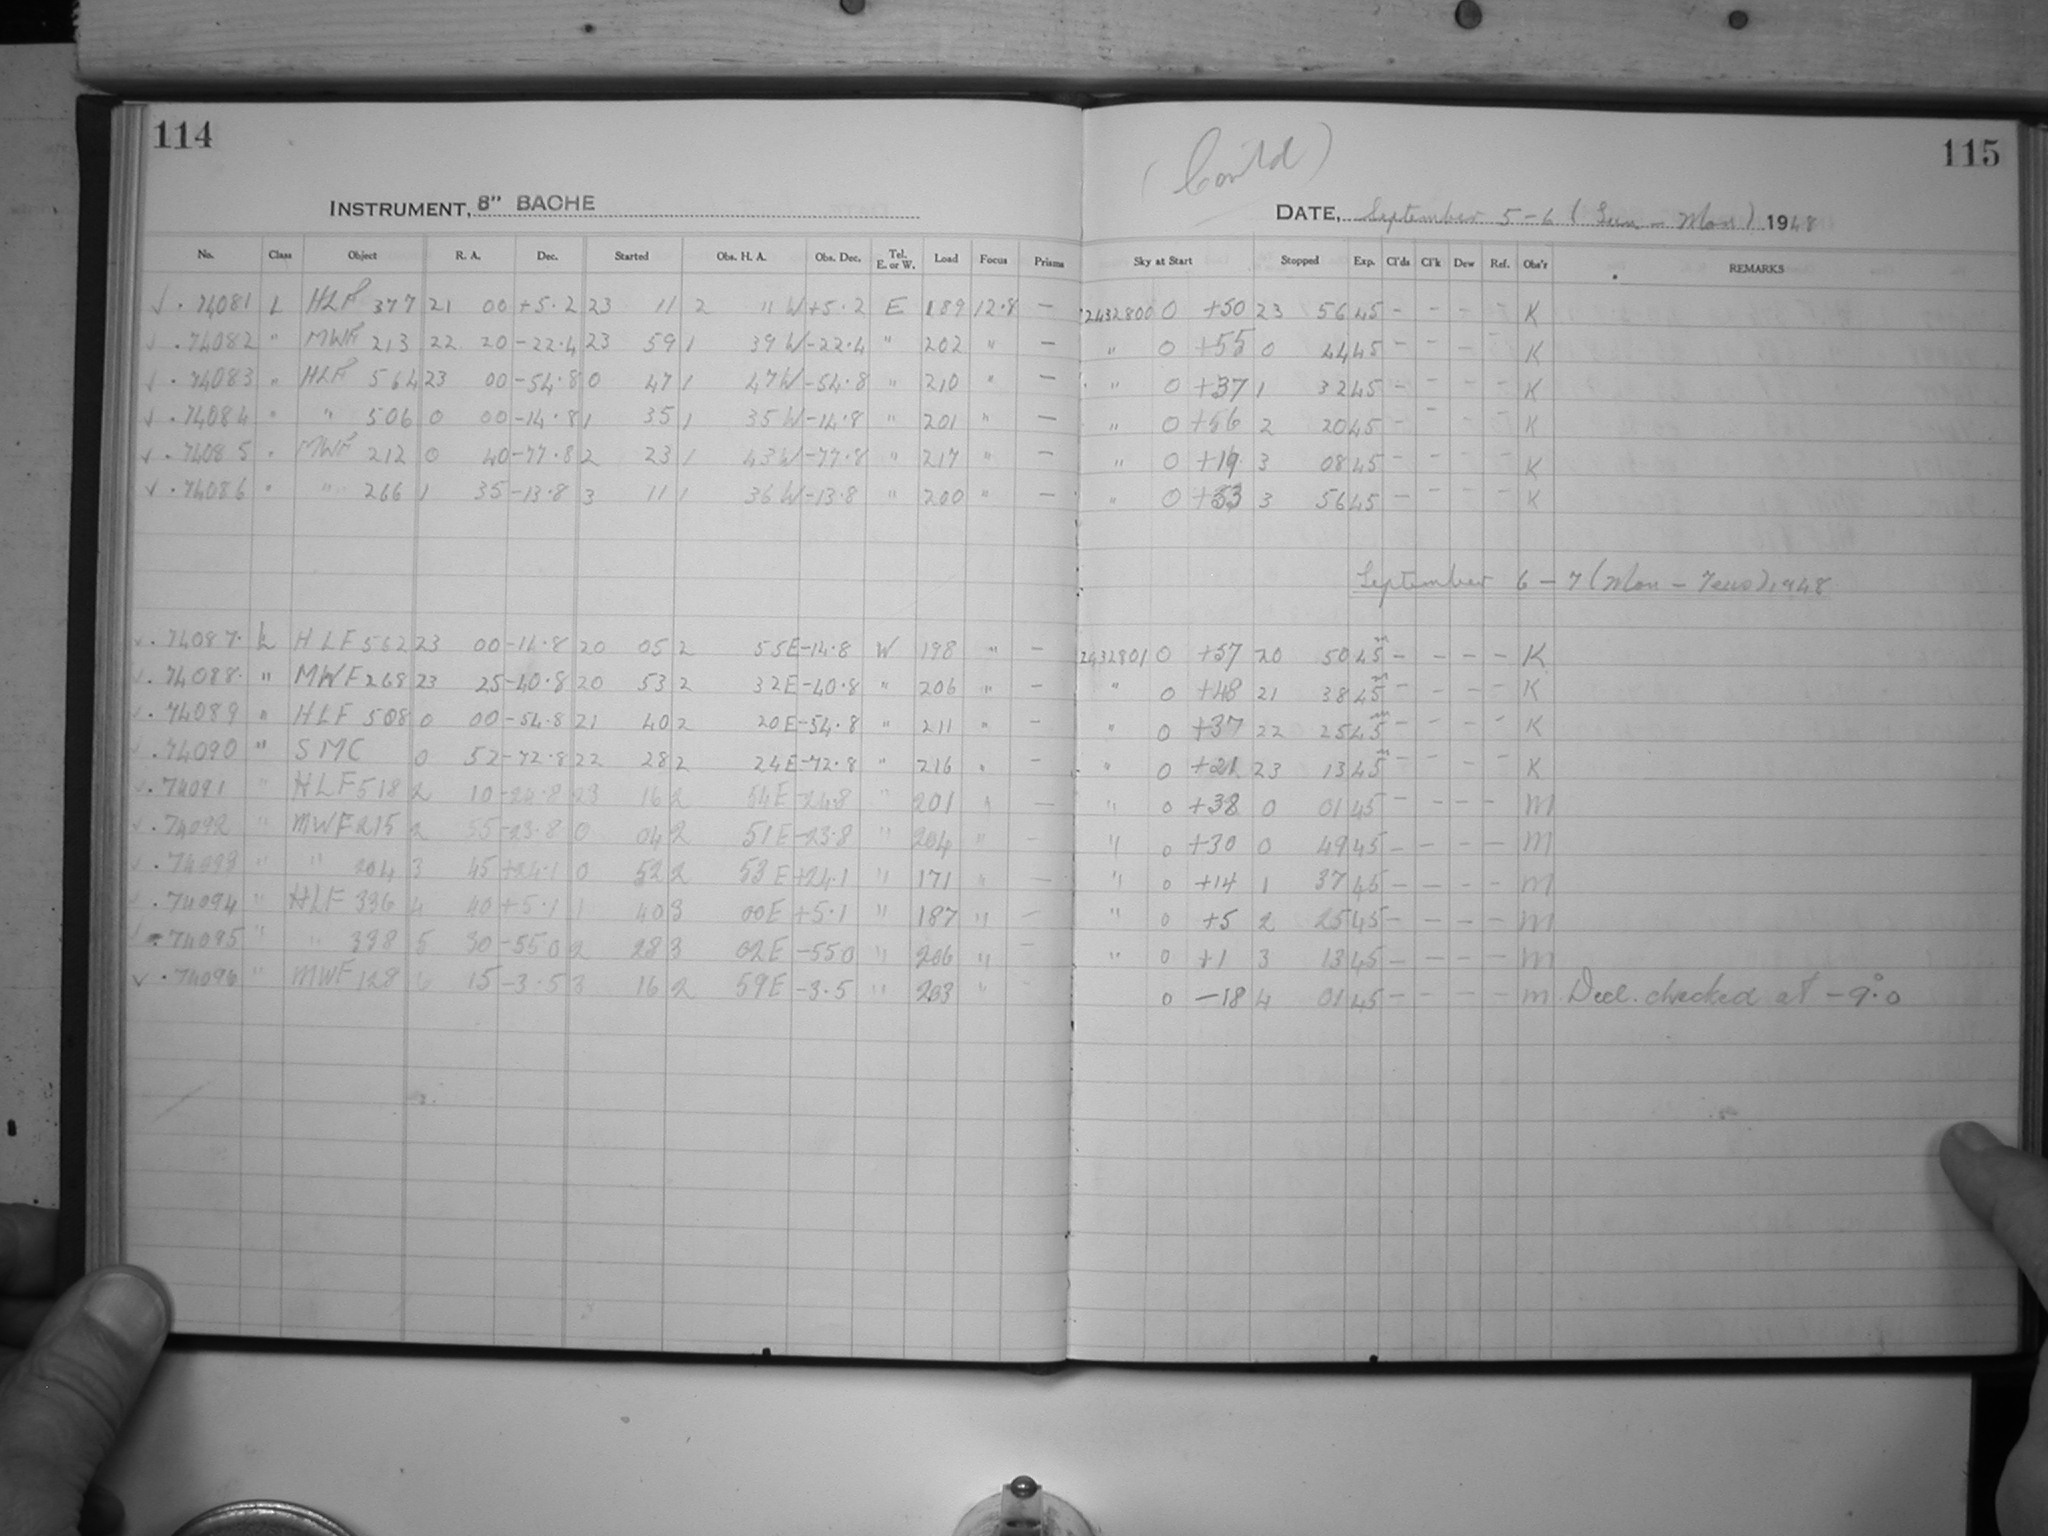 114
(Cont'd)
115
INSTRUMENT, 8" BACHE
DATE, September 5-6 (Sun - Mon) 1948
No. Class Object R. A. Dec. Started Obs. H. A. Obs. Dec. Tel. E. or W. Load Focus Prisms Sky at Start Stopped Exp. Cl'ds Cl'k Dew Ref. Obs'r REMARKS
√ . 74081 L HLF 377 21 00 +5.2 23 11 2 11 W +5.2 E 189 12.8 — 2432800 0 +50 23 56 45 - - - - K
√ . 74082 " MWF 213 22 20 -22.4 23 59 1 39 W -22.4 " 202 " — " 0 +55 0 44 45 - - - - K
√ . 74083 " HLF 564 23 00 -54.8 0 47 1 47 W -54.8 " 210 " — " 0 +37 1 32 45 - - - - K
√ . 74084 " " 506 0 00 -14.8 1 35 1 35 W -14.8 " 201 " — " 0 +56 2 20 45 - - - - K
√ . 74085 " MWF 212 0 40 -77.8 2 23 1 43 W -77.8 " 217 " — " 0 +19 3 08 45 - - - - K
√ . 74086 " " 266 1 35 -13.8 3 11 1 36 W -13.8 " 200 " — " 0 +53 3 56 45 - - - - K
September 6 - 7 (Mon - Tues), 1948
√ . 74087. L HLF 562 23 00 -14.8 20 05 2 55 E -14.8 W 198 " — 2432801 0 +57 20 50 45m - - - - K
√ . 74088. " MWF 268 23 25 -40.8 20 53 2 32 E -40.8 " 206 " — " 0 +48 21 38 45m - - - - K
√ . 74089 " HLF 508 0 00 -54.8 21 40 2 20 E -54.8 " 211 " — " 0 +37 22 25 45m - - - - K
√ . 74090 " SMC 0 52 -72.8 22 28 2 24 E -72.8 " 216 " — " 0 +21 23 13 45m - - - - K
√ . 74091 " HLF 518 2 10 -24.8 23 16 2 54 E -24.8 " 201 " — " 0 +38 0 01 45 - - - - M
√ . 74092 " MWF 215 2 55 -23.8 0 04 2 51 E -23.8 " 204 " — " 0 +30 0 49 45 - - - - M
√ . 74093 " " 204 3 45 +24.1 0 52 2 53 E +24.1 " 171 " — " 0 +14 1 37 45 - - - - M
√ . 74094 " HLF 336 4 40 +5.1 1 40 3 00 E +5.1 " 187 " — " 0 +5 2 25 45 - - - - M
√ . 74095 " " 398 5 30 -55.0 2 28 3 02 E -55.0 " 206 " — " 0 +1 3 13 45 - - - - M
√ . 74096 " MWF 128 6 15 -3.5 3 16 2 59 E -3.5 " 203 " — 0 -18 4 01 45 - - - - M Decl. checked at -9°.0